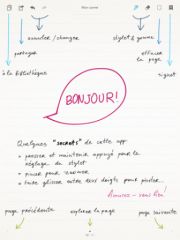 annuler / changer
stylet & gomme
partager
effacer
la page
à la bibliothèque
signet
BONJOUR!
Quelques "secrets" de cette app:
• presser et maintenir appuyé pour le
réglage du stylet
• pincer pour zoomer
• faire glisser entre deux doigts pour pivoter...
Amusez-vous bien!
page précédente
explorer la page
page suivante